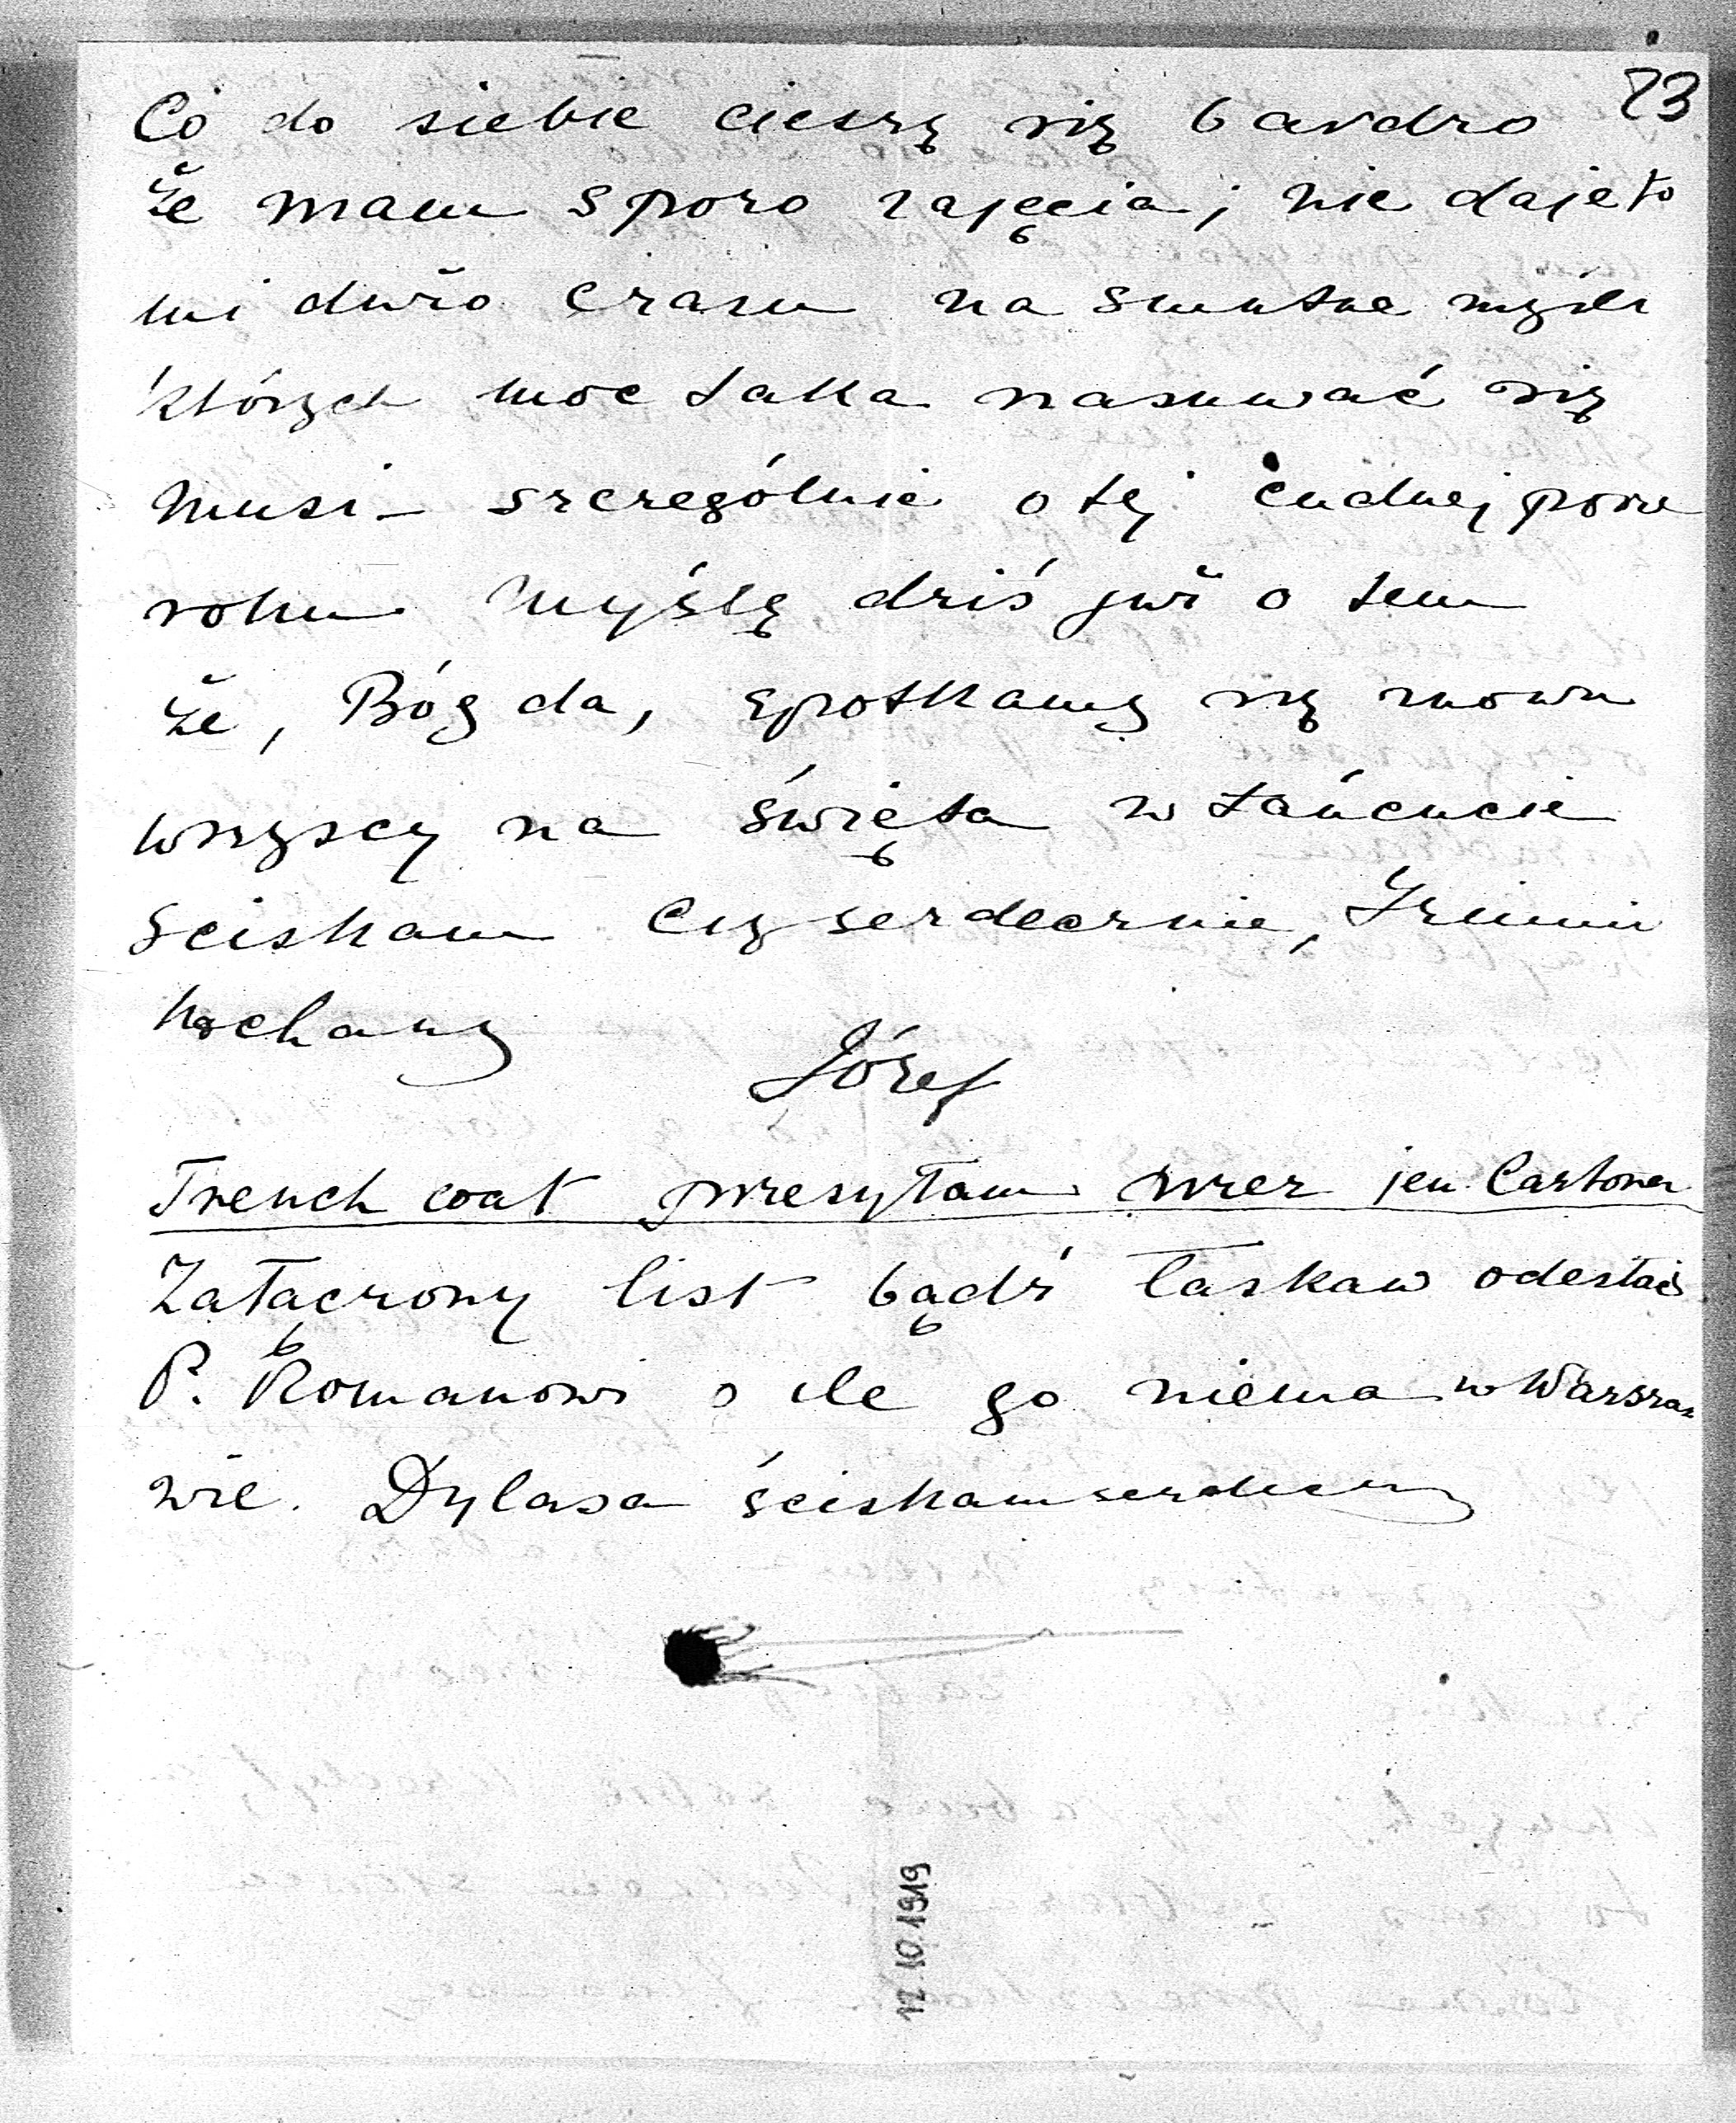 73
Co do siebie cieszę się bardzo
że mam sporo zajęcia; nie daje to
mi dużo czasu na smutne myśli
których moc taka nasuwać się
musi – szczególnie o tej cudnej porze
roku Myślę dziś już o tem
że, Bóg da, spotkamy się znowu
wszyscy na święta w Łańcucie
Sciskam Cię serdecznie,
kochany
Józef
Trench coat przesyłam przez jen. Cartona
Załączony list bądź łaskaw odesłać
P. Romanowi o ile go niema w Warsza-
wie. Dylasa ściskam
12.10.1919